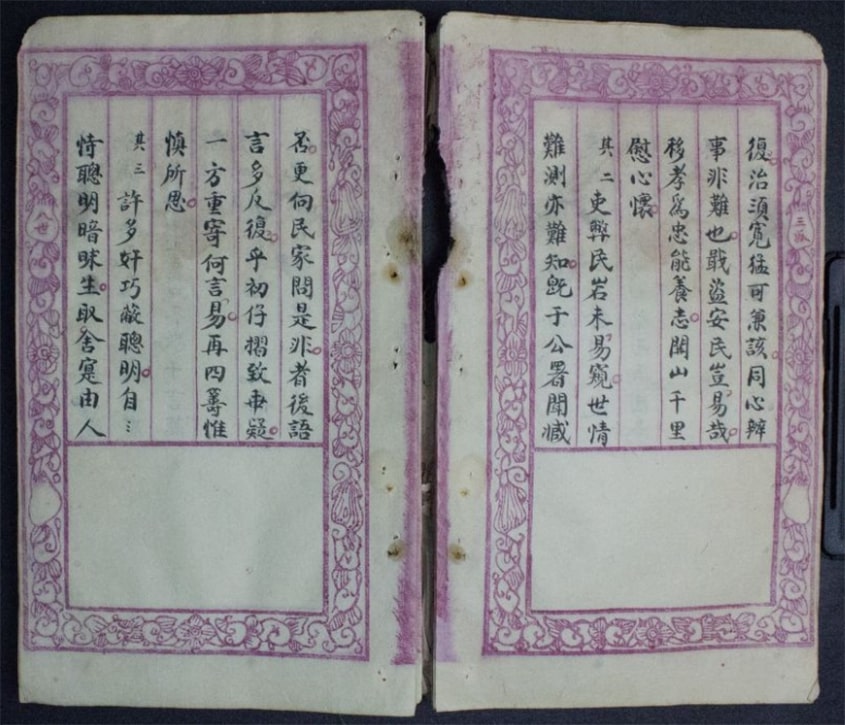 復治須寬猛可兼該同心辦
事非難也戢盜安民豈易哉
移孝爲忠能養志關山千里
慰心懷
其二吏弊民岩未易窺世情
難測亦難知旣于公署聞臧
否更向民家問是非者後語
言多反復乎初仔摺致再疑
一方重寄何言易再四籌惟
慎所思
其三許多奸巧蔽聰明自〻
恃聰明暗昧生取舍寔由人